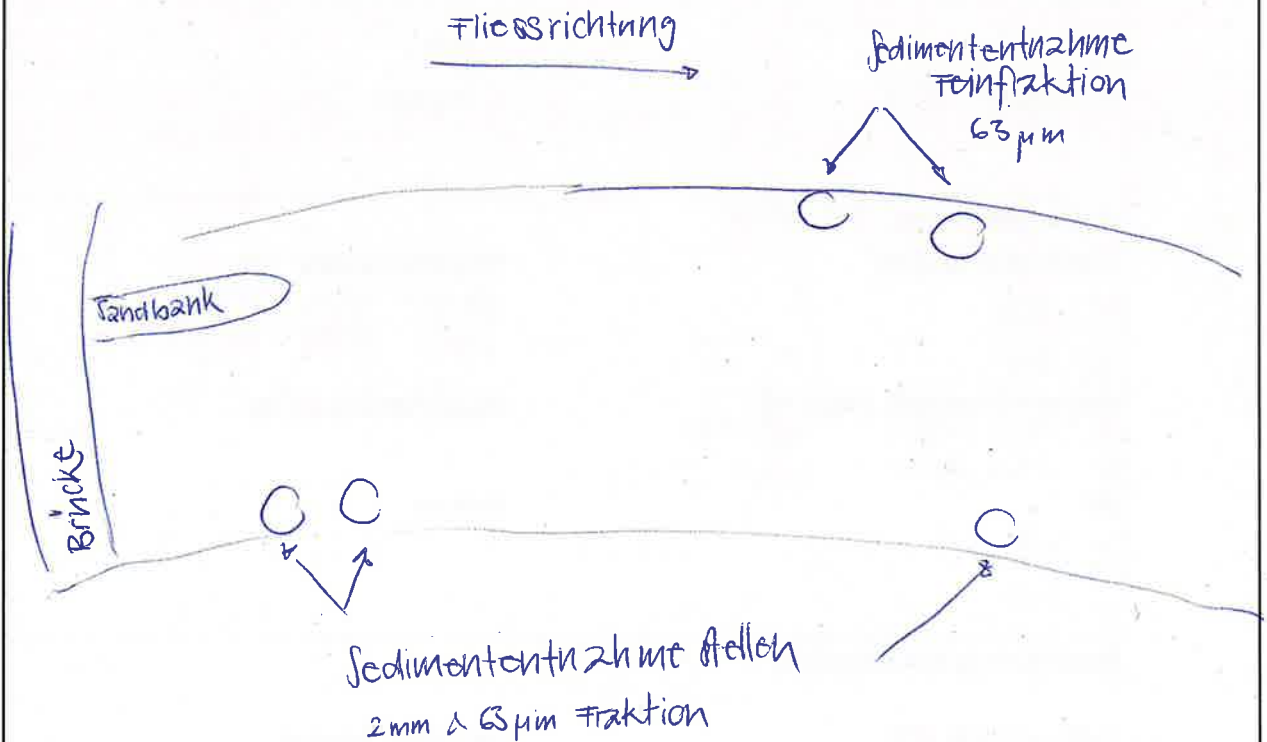 Fliessrichtung
Sedimententnahme
Feinfraktion
63 µm
Sandbank
Brücke
Sedimententnahme Stellen
2mm & 63 µm Fraktion